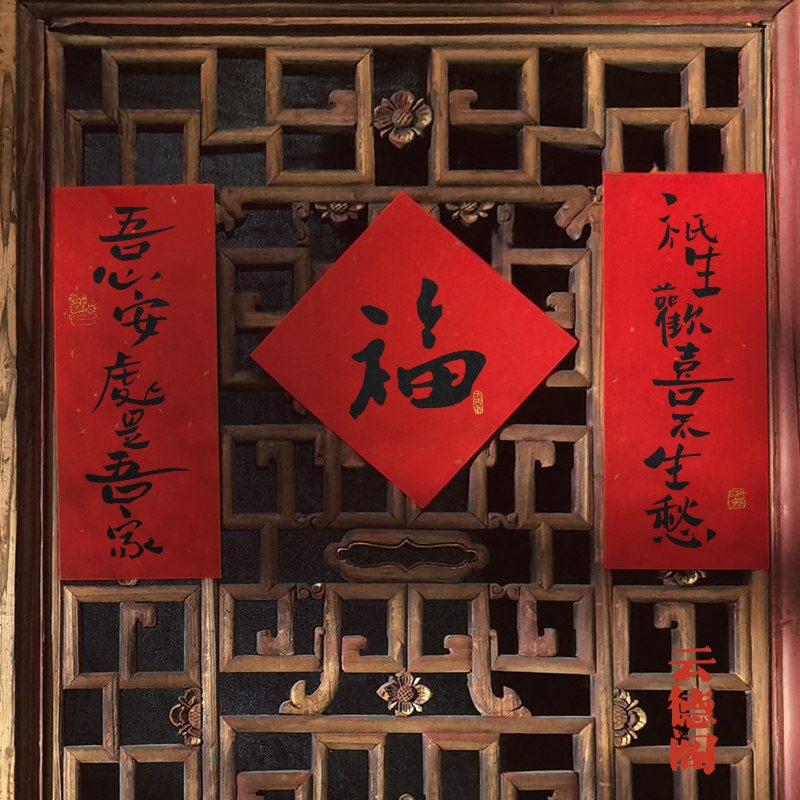 祇生歡喜不生愁
福
吾心安處是吾家
云德阁